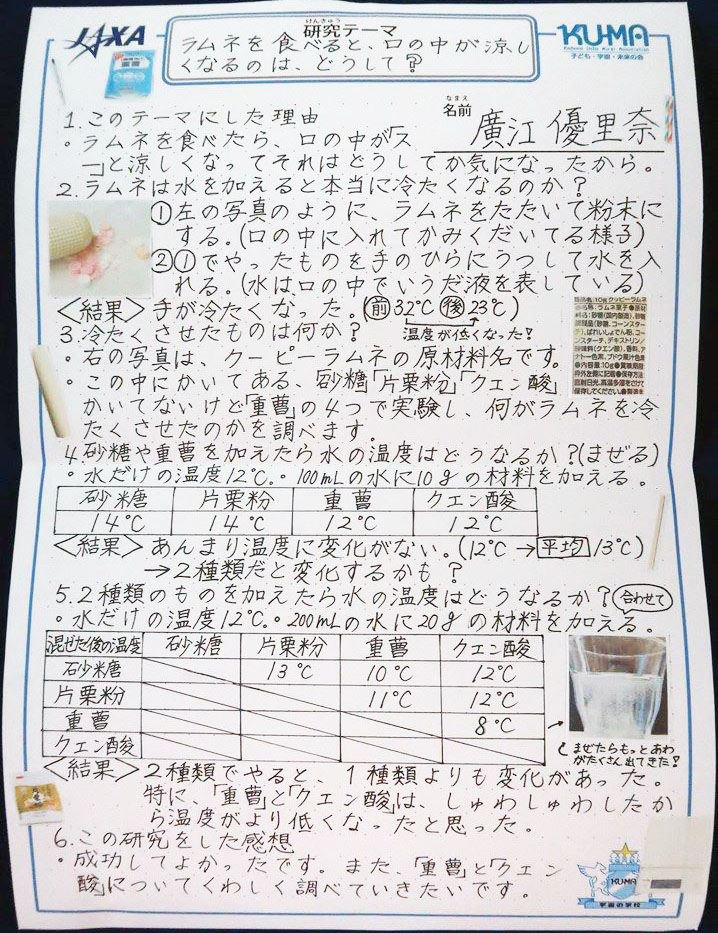 JAXA
けんきゅう
研究テーマ
KUMA
子ども・宇宙・未来の会
ラムネを食べると、口の中が涼し
くなるのは、どうして？
重曹
なまえ
名前
廣江 優里奈
1.このテーマにした理由
・ラムネを食べたら、口の中が「ス
ー」と涼しくなってそれはどうしてか気になったから。
2.ラムネは水を加えると本当に冷たくなるのか？
①左の写真のように、ラムネをたたいて粉末に
する。(口の中に入れてかみくだいてる様子)
②①でやったものを手のひらにうつして水を入
れる。(水は口の中でいうだ液を表している)
〈結果〉手が冷たくなった。(前32℃ 後23℃)
温度が低くなった！
3.冷たくさせたものは何か？
・右の写真は、クーピーラムネの原材料名です。
・この中にかいてある、砂糖「片栗粉」「クエン酸」
かいてないけど「重曹」の4つで実験し、何がラムネを冷
たくさせたのかを調べます。
4.砂糖や重曹を加えたら水の温度はどうなるか？(まぜる)
・水だけの温度12℃。・100mLの水に10gの材料を加える。
砂糖 片栗粉 重曹 クエン酸
14℃ 14℃ 12℃ 12℃
〈結果〉あんまり温度に変化がない。(12℃→平均13℃)
→2種類だと変化するかも？
5.2種類のものを加えたら水の温度はどうなるか？(合わせて)
・水だけの温度12℃。・200mLの水に20gの材料を加える。
混ぜた後の温度 砂糖 片栗粉 重曹 クエン酸
砂糖 13℃ 10℃ 12℃
片栗粉 11℃ 12℃
重曹 8℃ →
クエン酸
まぜたらもっとあわ
がたくさん出てきた！
〈結果〉2種類でやると、1種類よりも変化があった。
特に、「重曹」と「クエン酸」は、しゅわしゅわしたか
ら温度がより低くなったと思った。
6.この研究をした感想
・成功してよかったです。また、「重曹」と「クエン
酸」についてくわしく調べていきたいです。
KUMA
宇宙の学校